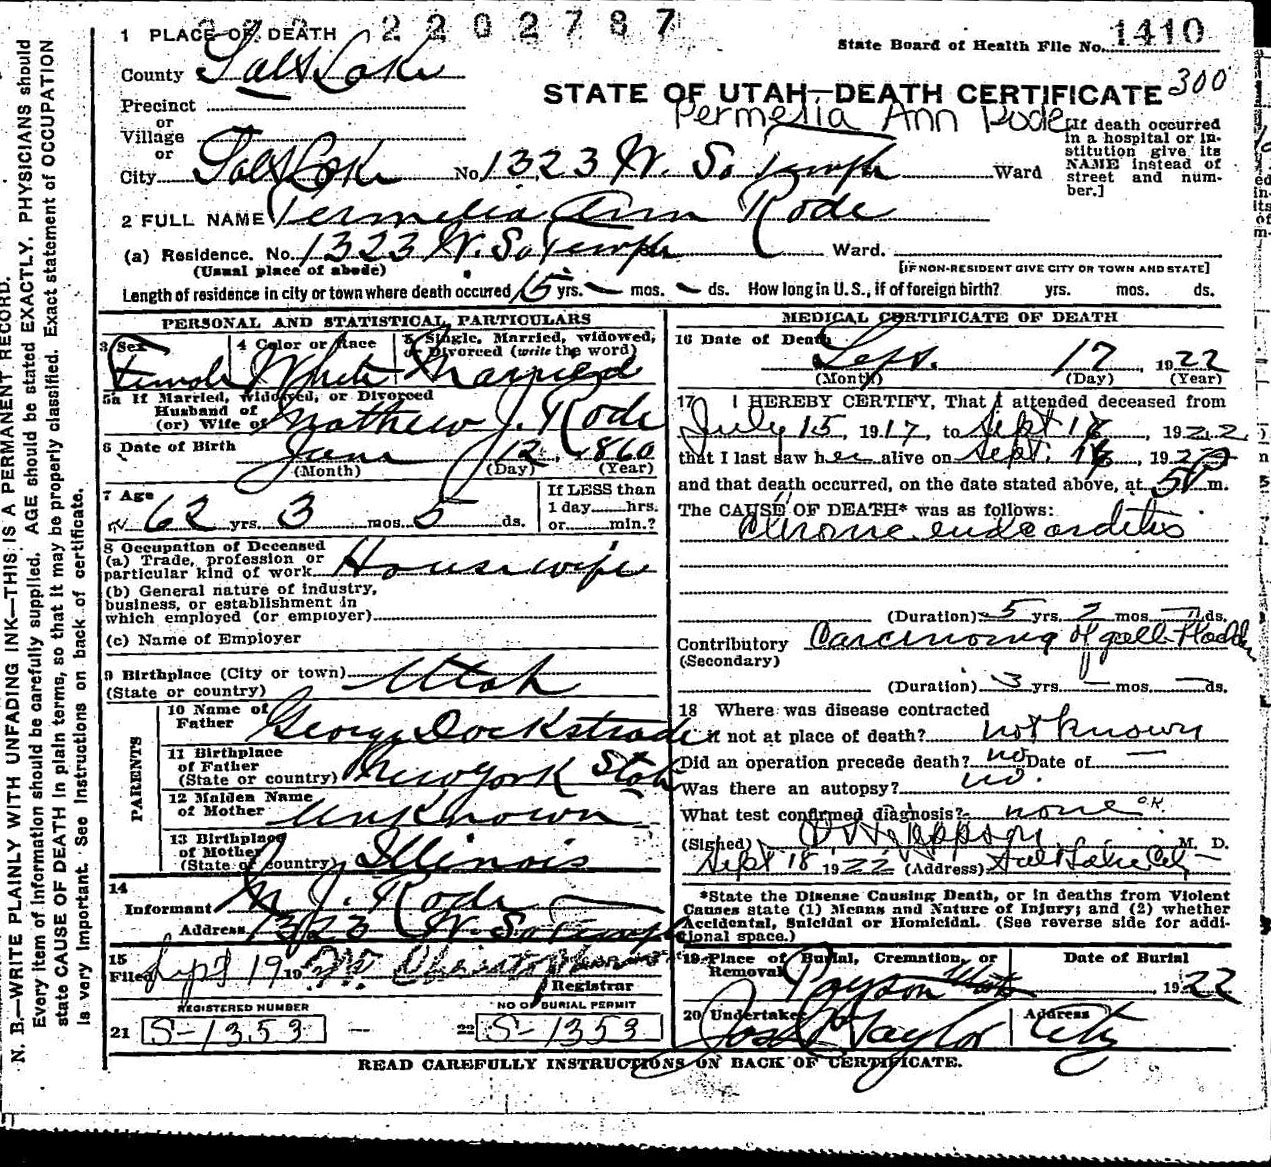 2202787
1 PLACE OF DEATH
State Board of Health File No. 1410
County Salt Lake
300
STATE OF UTAH—DEATH CERTIFICATE
Permelia Ann Rode
Precinct
or
Village
or
City Salt Lake No. 1323 W. So Temple Ward
[If death occurred
in a hospital or in-
stitution give its
NAME instead of
street and num-
ber.]
2 FULL NAME Permelia Ann Rode
(a) Residence. No. 1323 W. So Temple Ward.
(Usual place of abode)
[IF NON-RESIDENT GIVE CITY OR TOWN AND STATE]
Length of residence in city or town where death occured 15 yrs. — mos. — ds. How long in U.S., if of foreign birth? yrs. mos. ds.
PERSONAL AND STATISTICAL PARTICULARS
3 Sex
Female
4 Color or Race
White
5 Single, Married, widowed,
or Divorced (write the word)
Married
5a If Married, Widowed, or Divorced
Husband of
(or) Wife of Mathew J. Rode
6 Date of Birth June 12, 1860
(Month) (Day) (Year)
7 Age
62 yrs. 3 mos. 5 ds.
If LESS than
1 day......hrs.
or......min.?
8 Occupation of Deceased
(a) Trade, profession or
particular kind of work Housewife
(b) General nature of industry,
business, or establishment in
which employed (or employer)
(c) Name of Employer
9 Birthplace (City or town)
(State or country) Utah
PARENTS
10 Name of
Father George Dockstrade
11 Birthplace
of Father
(State or country) New York State
12 Maiden Name
of Mother Unknown
13 Birthplace
of Mother
(State or country) Illinois
14
Informant M. J. Rode
Address 1323 W. So Temple
15
Filed Sept 19 19
Registrar
REGISTERED NUMBER
21 S-1353 —
NO OF BURIAL PERMIT
22 S-1353
MEDICAL CERTIFICATE OF DEATH
16 Date of Death Sept. 17, 1922
(Month) (Day) (Year)
17 I HEREBY CERTIFY, That I attended deceased from
July 15, 1917, to Sept 17, 1922,
that I last saw her alive on Sept. 16, 1922
and that death occurred, on the date stated above, at 5 P m.
The CAUSE OF DEATH* was as follows:
Chronic endocarditis
(Duration) 5 yrs. 2 mos. — ds.
Contributory Carcinoma of gall bladder
(Secondary)
(Duration) 3 yrs. — mos. — ds.
18 Where was disease contracted
if not at place of death? not known
Did an operation precede death? no Date of —
Was there an autopsy? no.
What test confirmed diagnosis? none O.K.
(Signed) Jeppson M. D.
Sept 18 1922 (Address) Salt Lake City
*State the Disease Causing Death, or in deaths from Violent
Causes state (1) Means and Nature of Injury; and (2) whether
Accidental, Suicidal or Homicidal. (See reverse side for addi-
tional space.)
19 Place of Burial, Cremation, or
Removal Payson Utah
Date of Burial
1922
20 Undertaker
Jos. Taylor
Address City
READ CAREFULLY INSTRUCTIONS ON BACK OF CERTIFICATE.
N. B.—WRITE PLAINLY WITH UNFADING INK—THIS IS A PERMANENT RECORD.
Every item of information should be carefully supplied. AGE should be stated EXACTLY. PHYSICIANS should
state CAUSE OF DEATH in plain terms, so that it may be properly classified. Exact statement of OCCUPATION
is very important. See instructions on back of certificate.